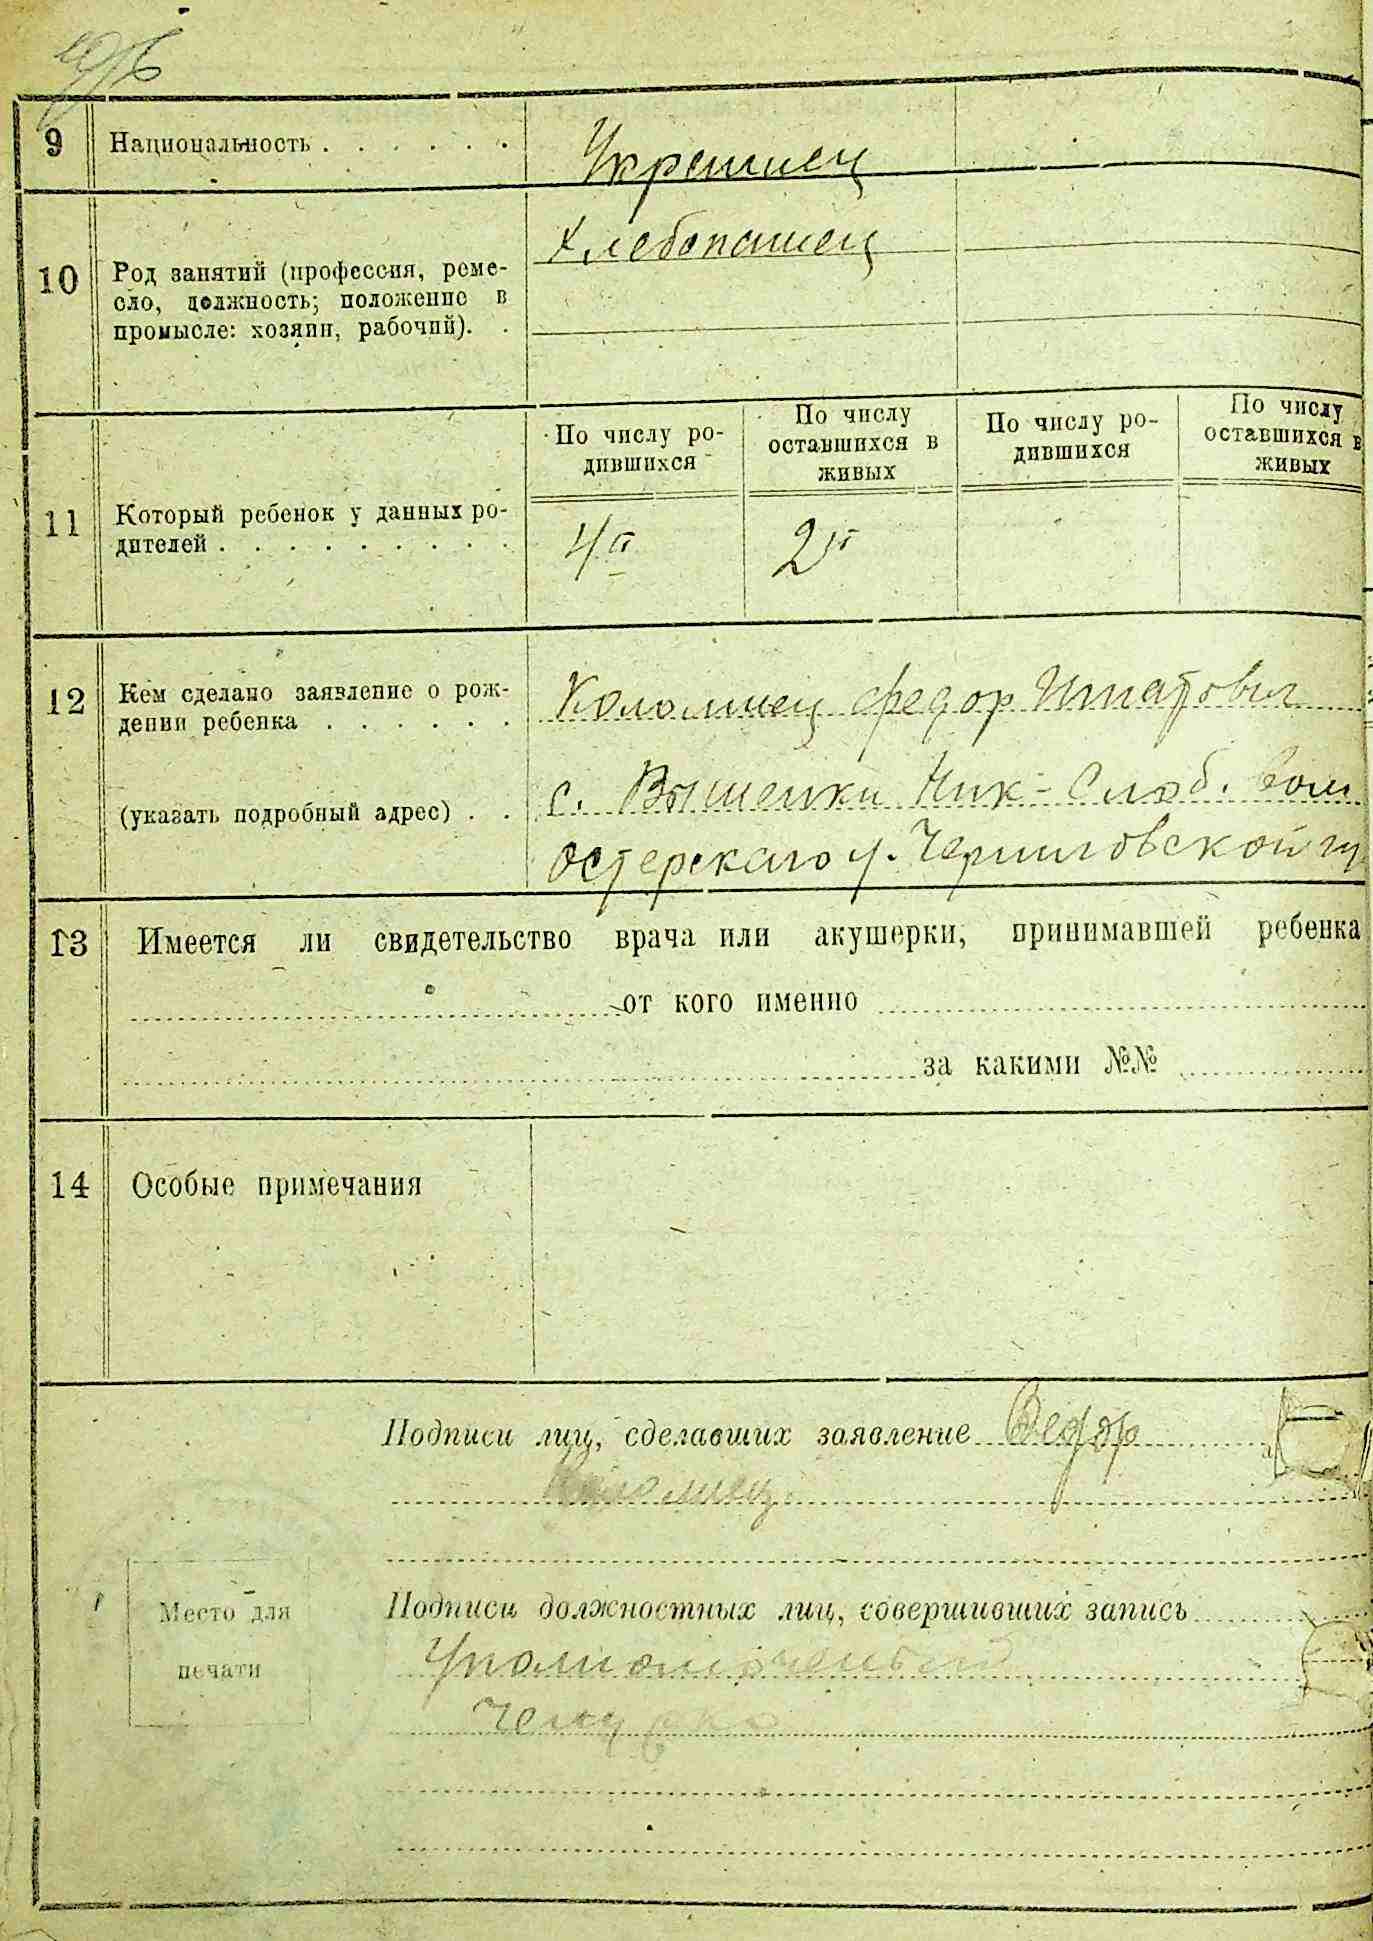 9 Национальность . . . . . . Украинец
Хлебопашец
10 Род занятий (профессия, реме-
сло, должность; положение в
промысле: хозяин, рабочий). .
По числу ро-
дившихся
По числу
оставшихся в
живых
По числу ро-
дившихся
По числу
оставшихся в
живых
11 Который ребенок у данных ро-
дителей . . . . . . . . .
4й 2й
12 Кем сделано заявление о рож-
дении ребенка . . . . . .
Коломиец Федор Игнатович
(указать подробный адрес) . .
с. Вишенки Ник-Слоб. вол
Остерскаго у. Черниговской гу
13 Имеется ли свидетельство врача или акушерки, принимавшей ребенка
от кого именно
за какими №№
14 Особые примечания
Подписи лиц, сделавших заявление Федор
Коломиец.
Место для
печати
Подписи должностных лиц, совершивших запись
Уполномоченый